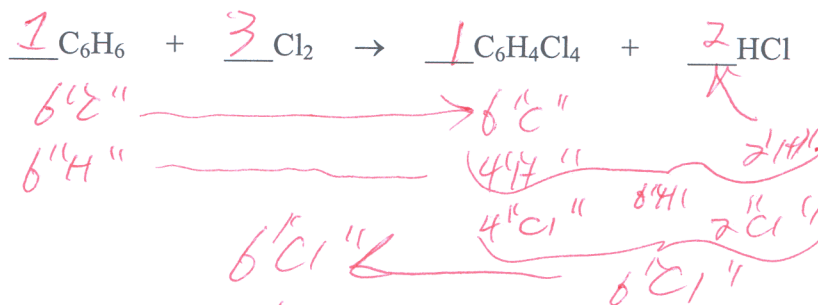 1 C6H6 + 3 Cl2 → 1 C6H4Cl4 + 2 HCl
6"C" 6"C"
6"H" 4"H" 6"H" 2"H"
4"Cl" 2"Cl"
6"Cl" 6"Cl"